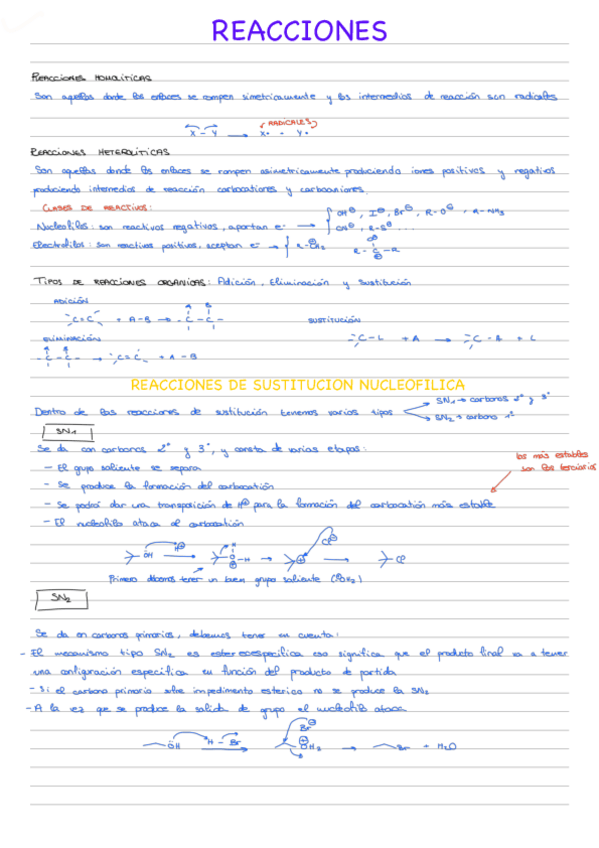 REACCIONES
REACCIONES HOMOLITICAS
Son aquellas donde los enlaces se rompen simetricamente y los intermedios de reacción son radicales
RADICALES
X - Y → X• + Y•
REACCIONES HETEROLITICAS
Son aquellas donde los enlaces se rompen asimetricamente produciendo iones positivos y negativos
produciendo intermedios de reacción carbocationes y carbaniones.
CLASES DE REACTIVOS:
Nucleofilos: son reactivos negativos, aportan e⁻ → { OH⊖, I⊖, Br⊖, R-O⊖, R-NH₂
CN⊖, R-S⊖ ...
Electrofilos: son reactivos positivos, aceptan e⁻ → { R-CH₂
R-C-R
TIPOS DE REACCIONES ORGANICAS: Adición, Eliminación y Sustitución
ADICIÓN
C=C + A-B → -C-C-
A B
SUSTITUCIÓN
C-L + A → C-A + L
ELIMINACIÓN
-C-C- → C=C + A-B
REACCIONES DE SUSTITUCION NUCLEOFILICA
Dentro de las reacciones de sustitución tenemos varios tipos
SN₁ → carbonos 2° y 3°
SN₂ → carbono 1°
SN₁
Se da con carbonos 2° y 3°, y consta de varias etapas:
- El grupo saliente se separa
- Se produce la formación del carbocatión
- Se podrá dar una transposición de H⊖ para la formación del carbocatión más estable
los más estables
son los terciarios
- El nucleofilo ataca al carbocatión
OH H⊕ → O-H → ⊕ Cl⊖ → Cl
Primero debemos tener un buen grupo saliente
SN₂
Se da en carbonos primarios, debemos tener en cuenta:
- El mecanismo tipo SN₂ es estereoespecifica eso significa que el producto final va a tener
una configuración especifica en función del producto de partida
- Si el carbono primario sufre impedimento esterico no se produce la SN₂
- A la vez que se produce la salida de grupo el nucleofilo ataca
OH H-Br → OH₂ Br⊖ → Br + H₂O